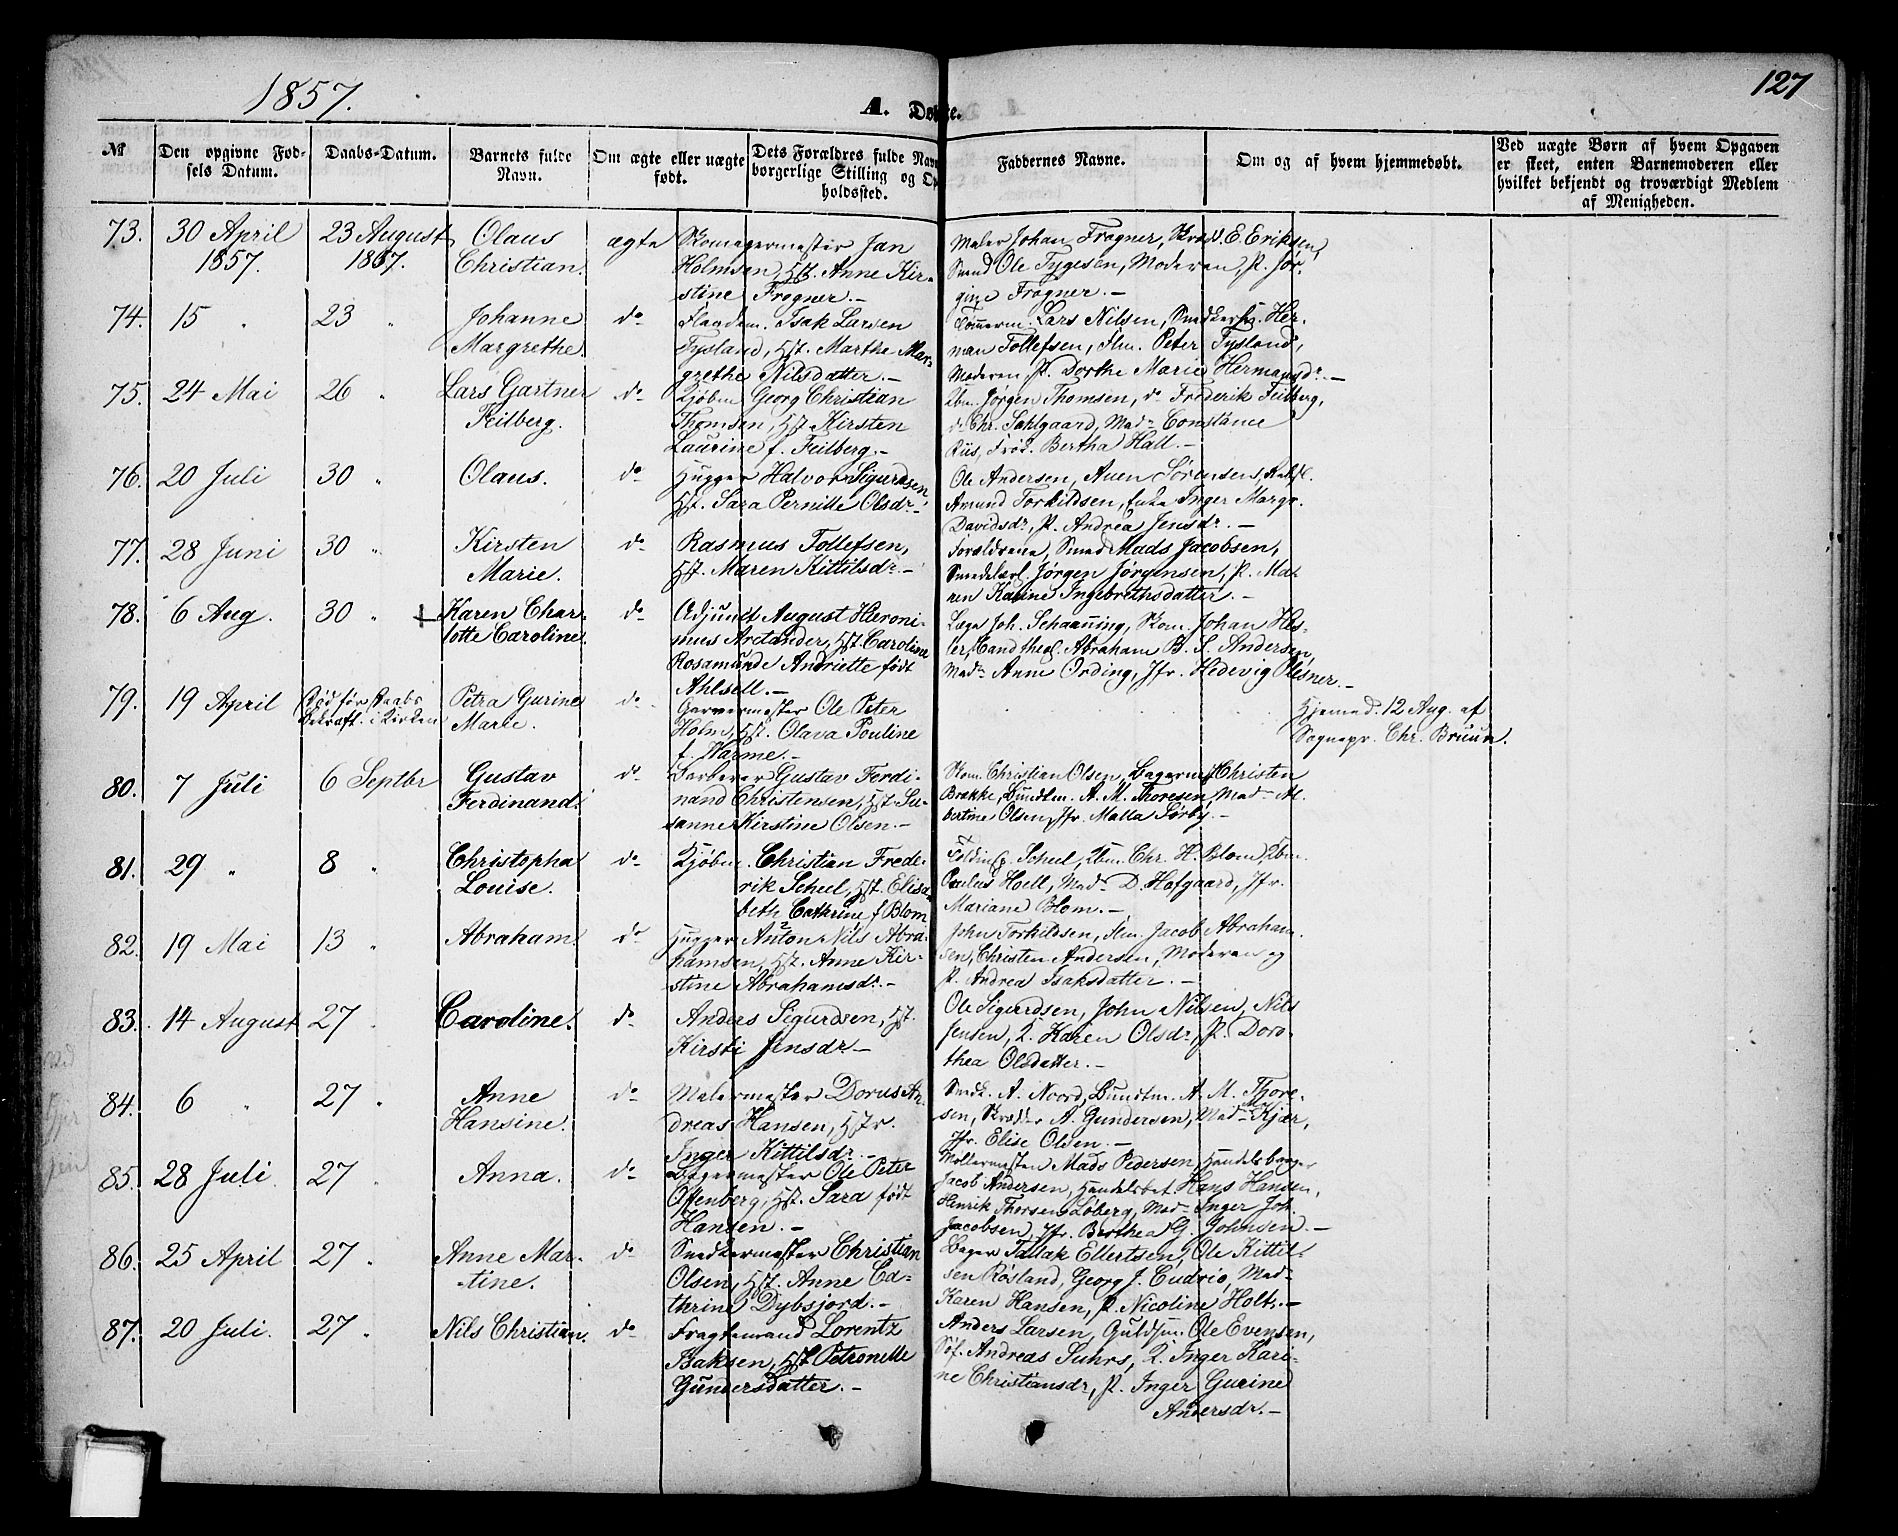 1857.
A. Døbte.
127
No
Den opgivne Fødsels Datum.
Daabs-Datum.
Barnets fulde Navn.
Om ægte eller uægte født.
Dets Forældres fulde Navn borgerlige Stilling og Opholdssted.
Faddernes Navne.
Om og af hvem hjemmedøbt.
Ved uægte Børn af hvem Opgaven er skeet, enten Barnemoderen eller hvilket bekjendt og troværdigt Medlem af Menigheden.
73. 30 April 1857. 23 August 1857. Olaus Christian. ægte
Skomagermester Jan
Holmsen, Hst. Anne Kir-
stine Frogner.-
Maler Johan Frogner, Skrædd. E. Eriksen,
Smed Ole Tygesen, Moderen, P. Jør-
gine Frogner.-
74. 15 " 23 " Johanne Margrethe. do
Flaadem. Isak Larsen
Tysland, Hst. Marthe Mar-
grethe Nilsdatter.-
Tømmerm. Lars Nilsen, Snedkersv. Her-
man Tollefsen, Flm. Peter Tysland,
Moderen, P. Dorthe Marie Hermansdr.-
75. 24 Mai 26 " Lars Gartner Feilberg. do
Kjøbm. Georg Christian
Thomsen, Hst. Kirsten
Laurine f. Feilberg.-
Kbm. Jørgen Thomsen, do Frederik Feilberg,
do Chr. Sahlgaard, Mad. Constance
Riis, Frøk. Bertha Hall.-
76. 20 Juli 30 " Olaus. do
Hugger Halvor Sigurdsen,
Hst. Sara Pernille Olsdr.-
Ole Andersen, Auen Sørensen,
Amund Torkildsen, Enke Inger Margr.
Davidsdr, P. Andrea Jensdr.-
77. 28 Juni 30 " Kirsten Marie. do
Rasmus Tollefsen,
Hst. Maren Kittilsdr.-
Forældrene, Smed Mads Jacobsen,
Smedelærl. Jørgen Jørgensen, P. Ma-
ren Karine Ingebrethsdatter.-
78. 6 Aug. 30 " + Karen Char-
lotte Caroline. do
Adjunct August Hieroni-
mus Arctander, Hst. Caroline
Rosamunde Andriette født
Ahlsell.-
Læge Joh. Schaanning, Skom. Johan Hes-
ler, Cand. theol. Abraham B. S. Andersen,
Mad. Anne Ording, Jfr. Hedevig Plesner.-
79. 19 April Død før Daabs Bekræft. i Kirken Petra Gurine Marie. do
Garvermester Ole Peter
Holm, Hst. Olava Pouline
f. Warme.-
Hjemmed. 12 Aug. af
Sognepr. Chr. Bruun.
80. 7 Juli 6 Septbr Gustav Ferdinand. do
Barberer Gustav Ferdi-
nand Christensen, Hst. Su-
sanne Kirstine Olsen.-
Skom. Christian Olsen, Bagerm. Christen
Brække, Bundtm. A. M. Thoresen, Mad. Al-
bertine Olsen, Jfr. Malla Sørby.-
81. 29 " 8 " Christopha Louise. do
Kjøbm. Christian Frede-
rik Scheel, Hst. Elisa-
beth Cathrine f Blom
Toldinsp. Scheel, Kbm. Chr. H. Blom, Kbm.
Paulus Hoell, Mad. D. Hofgaard, Jfr.
Mariane Blom.-
82. 19 Mai 13 " Abraham. do
Hugger Anton Nils Abra-
hamsen, Hst. Anne Kir-
stine Abrahamsdr.-
John Torkildsen, Flm. Jacob Abraham-
sen, Christen Andersen, Moderen og
P. Andrea Isaksdatter.-
83. 14 August 27 " Caroline. do
Anders Sigurdsen, Hst.
Kirsti Jensdr.-
Ole Sigurdsen, John Nilsen, Nils
Jensen, K. Karen Olsdr, P. Doro-
thea Olsdatter.-
84. 6 " 27 " Anne Hansine. do
Malermester Dorus An-
dreas Hansen, Hstr.
Inger Kittilsdr.-
Snedk. A. Noord, Bundtm. A. M. Thore-
sen, Skrædder A. Gundersen, Mad. M. Kjær,
Jfr. Elise Olsen.-
85. 28 Juli. 27 " Anna. do
Bagermester Ole Peter
Offenberg, Hst. Sara født
Hansen.-
Møllermester Mads Pedersen, Handelsborger
Jacob Andersen, Handelsbet. Hans Hansen,
Henrik Thorsen Løberg, Mad. Inger Joh.
Jacobsen, Jfr. Berthea G. Johnsen.-
86. 25 April 27 " Anne Mar-
tine. do
Snedkermester Christian
Olsen, Hst. Anne Ca-
thrine Dybsjord.-
Bager Tallak Ellertsen, Ole Kittil-
sen Røsland, Georg J. Cudrio, Mad.
Karen Hansen, P. Nicoline Holt.-
87. 20 Juli. 27 " Nils Christian. do
Fragtemand Lorentz
Isaksen, Hst. Petronelle
Gundersdatter.-
Anders Larsen, Guldsm. Ole Evensen,
Søf. Andreas Suhrs, K. Inger Kari-
ne Christiansdr, P. Inger Gurine
Andersdr.-